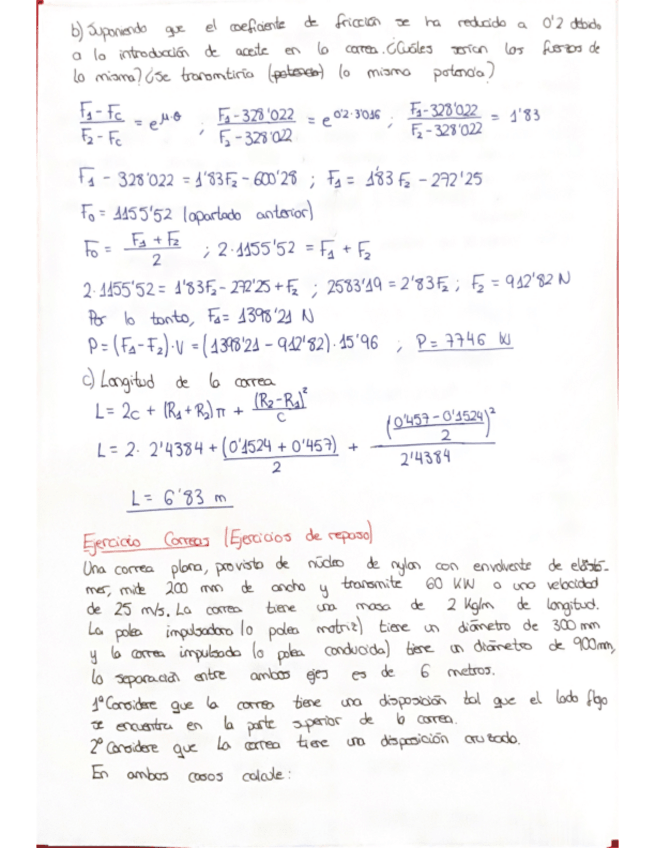 b) Suponiendo que el coeficiente de fricción se ha reducido a 0'2 debido
a la introducción de aceite en la correa. ¿Cuáles serían las fuerzas de
la misma? ¿Se transmitiría (potencia) la misma potencia?
(F1 - Fc)/(F2 - Fc) = e^μ·θ ; (F1 - 328'022)/(F2 - 328'022) = e^0'2·3'016 ; (F1 - 328'022)/(F2 - 328'022) = 1'83
F1 - 328'022 = 1'83F2 - 600'28 ; F1 = 1'83 F2 - 272'25
F0 = 1155'52 (apartado anterior)
F0 = (F1 + F2)/2 ; 2·1155'52 = F1 + F2
2·1155'52 = 1'83F2 - 272'25 + F2 ; 2583'19 = 2'83F2 ; F2 = 912'82 N
Por lo tanto, F1 = 1398'21 N
P = (F1 - F2)·V = (1398'21 - 912'82)·15'96 ; P = 7746 W
c) Longitud de la correa
L = 2c + (R1 + R2)π + (R2 - R1)²/c
L = 2· 2'4384 + (0'1524 + 0'457)/2 + ((0'457 - 0'1524)/2)²/2'4384
L = 6'83 m
Ejercicio Correas (Ejercicios de repaso)
Una correa plana, provista de núcleo de nylon con envolvente de elastó-
mer, mide 200 mm de ancho y transmite 60 KW a una velocidad
de 25 m/s. La correa tiene una masa de 2 Kg/m de longitud.
La polea impulsadora (o polea motriz) tiene un diámetro de 300 mm
y la correa impulsada (o polea conducida) tiene un diámetro de 900mm,
la separación entre ambos ejes es de 6 metros.
1º Considere que la correa tiene una disposición tal que el lado flojo
se encuentra en la parte superior de la correa.
2º Considere que la correa tiene una disposición cruzada.
En ambos casos calcule: